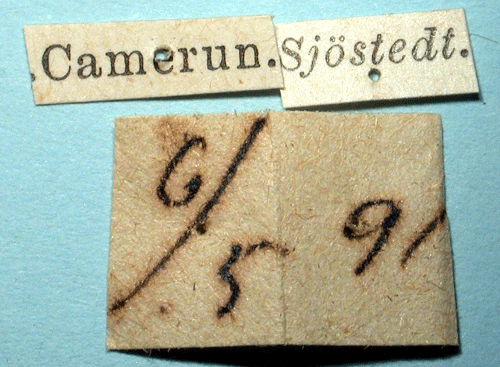 .Camerun. Sjöstedt.
6/5 91